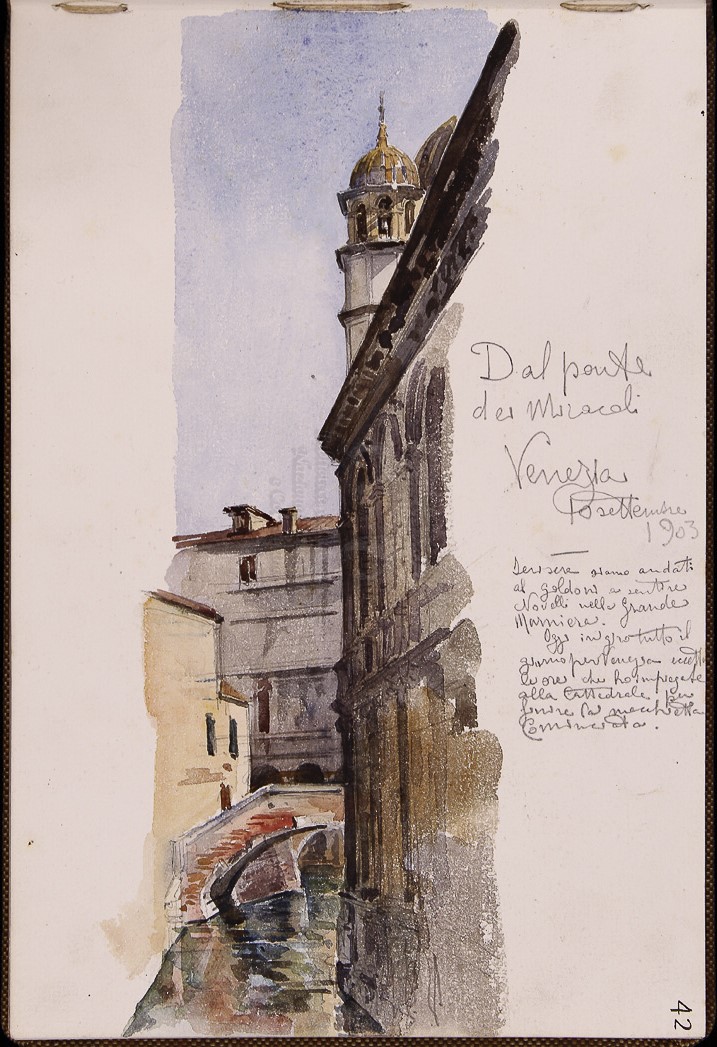 Dal ponte
dei Miracoli
Venezia
settembre
1903
Ieri sera siamo andati
al goldoni a sentire
Novelli nella grande
Maniera.
Oggi in giro tutto il
giorno per Venezia
le ore che ho impiegate
alla Cattedrale per
finire la macchietta
Cominciata.
42